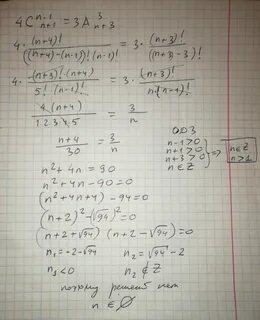 4C^{n-1}_{n+1} = 3A^{3}_{n+3}
4 · (n+4)! / ((n+4)-(n-1))!(n-1)! = 3 · (n+3)! / ((n+3)-3)!
4 · (n+3)!·(n+4) / 5!(n-1)! = 3 · (n+3)! / n·(n-1)!
4·(n+4) / 1·2·3·4·5 = 3 / n
(n+4) / 30 = 3 / n
ОДЗ
n-1>0
n+1>0
n+3>0
n∈Z
=> n∈Z
n>1
n²+4n=90
n²+4n-90=0
(n²+4n+4)-94=0
(n+2)²-(√94)²=0
(n+2+√94)(n+2-√94)=0
n₁=-2-√94 n₂=√94-2
n₁<0 n₂∉Z
поэтому решений нет
n∈∅